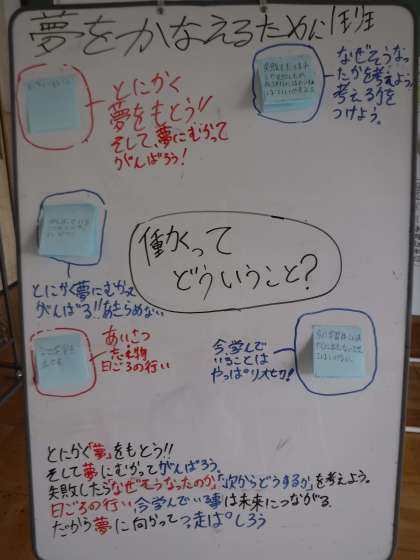 夢をかなえるために 1年1班
とにかく
夢をもとう!!
そして、夢にむかって
がんばろう!
なぜそうなっ
たかを考えよう。
考えるくせを
つけよう。
働くって
どういうこと?
とにかく夢にむかって
がんばる!!あきらめない
あいさつ
忘れ物
日ごろの行い
今学んで
いることは
やっぱり大セツ!
とにかく「夢」をもとう!!
そして夢にむかってがんばろう。
失敗したら「なぜそうなったのか」「次からどうするか」を考えよう。
日ごろの行い、今学んでいる事は未来につながる
だから夢に向かってつっ走ぱしろう